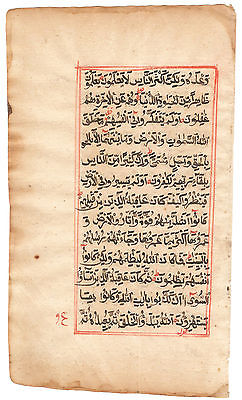 وعده ولكن اكثر الناس لا يعلمون يعلمون
ظاهرا من الحيوة الدنيا وهم عن الاخرة هم
غفلون اولم يتفكروا في انفسهم ما خلق
الله السموت والارض وما بينهما الا
بالحق واجل مسمى وان كثيرا من الناس
بلقاء ربهم لكفرون اولم يسيروا في الارض
فينظروا كيف كان عاقبة الذين من قبلهم
كانوا اشد منهم قوة واثاروا الارض و
عمروها اكثر مما عمروها وجاءتهم رسلهم
بالبينت فما كان الله ليظلمهم ولكن كانوا
انفسهم يظلمون ثم كان عاقبة الذين اساءوا
السوأى ان كذبوا بايت الله وكانوا بها
يستهزءون الله يبدؤا الخلق ثم يعيده ثم